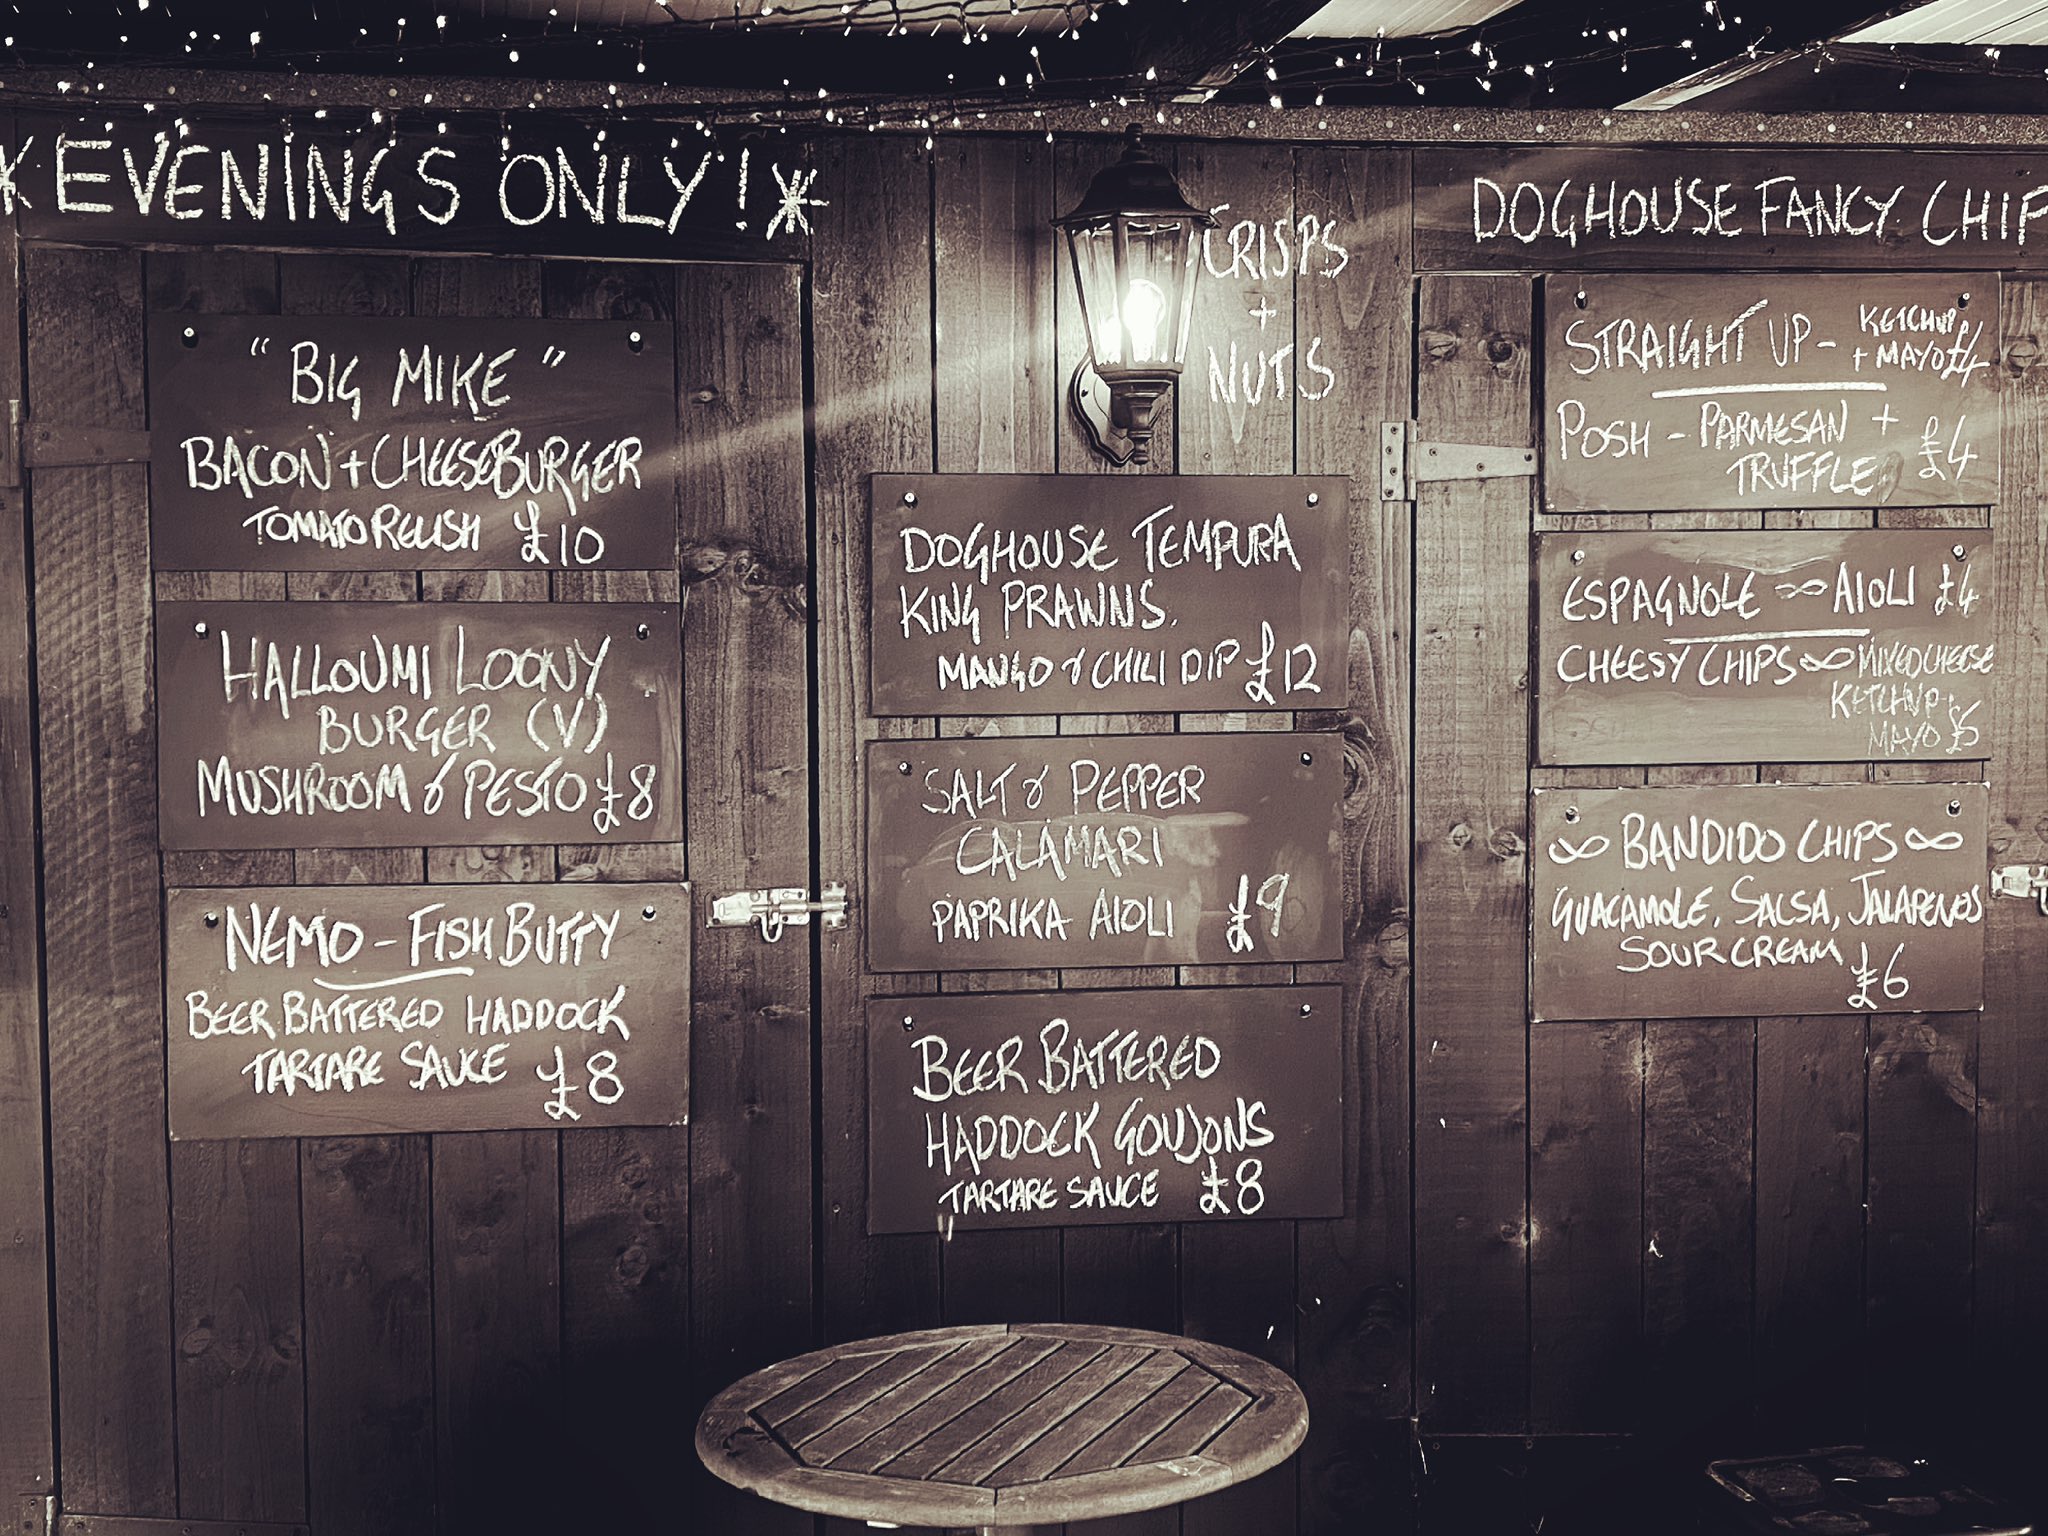 * EVENINGS ONLY! *
"BIG MIKE"
BACON + CHEESEBURGER
TOMATO RELISH £10
HALLOUMI LOONY
BURGER (V)
MUSHROOM & PESTO £8
NEMO - FISH BUTTY
BEER BATTERED HADDOCK
TARTARE SAUCE £8
CRISPS
+
NUTS
DOGHOUSE TEMPURA
KING PRAWNS.
MANGO & CHILI DIP £12
SALT & PEPPER
CALAMARI
PAPRIKA AIOLI £9
BEER BATTERED
HADDOCK GOUJONS
TARTARE SAUCE £8
DOGHOUSE FANCY CHIP
STRAIGHT UP - KETCHUP
+ MAYO £4
POSH - PARMESAN +
TRUFFLE £4
ESPAGNOLE ∞ AIOLI £4
CHEESY CHIPS ∞ MIXED CHEESE
KETCHUP +
MAYO £5
∞ BANDIDO CHIPS ∞
GUACAMOLE, SALSA, JALAPENOS
SOUR CREAM £6